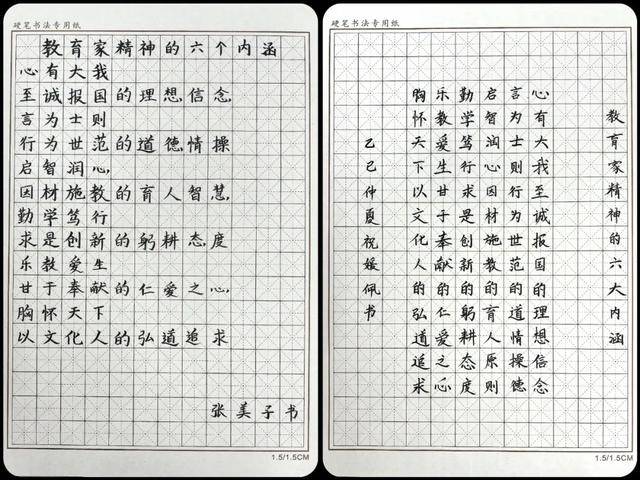 硬笔书法专用纸
教育家精神的六个内涵
心有大我
至诚报国的理想信念
言为士则
行为世范的道德情操
启智润心
因材施教的育人智慧
勤学笃行
求是创新的躬耕态度
乐教爱生
甘于奉献的仁爱之心
胸怀天下
以文化人的弘道追求
张美子书
1.5/1.5CM
硬笔书法专用纸
教育家精神的六大内涵
心有大我至诚报国的理想信念
言为士则行为世范的道情操德
启智润心因材施教的育人原则
勤学笃行求是创新的躬耕态度
乐教爱生甘于奉献的仁爱之心
胸怀天下以文化人的弘道追求
乙巳仲夏祝媛佩书
1.5/1.5CM